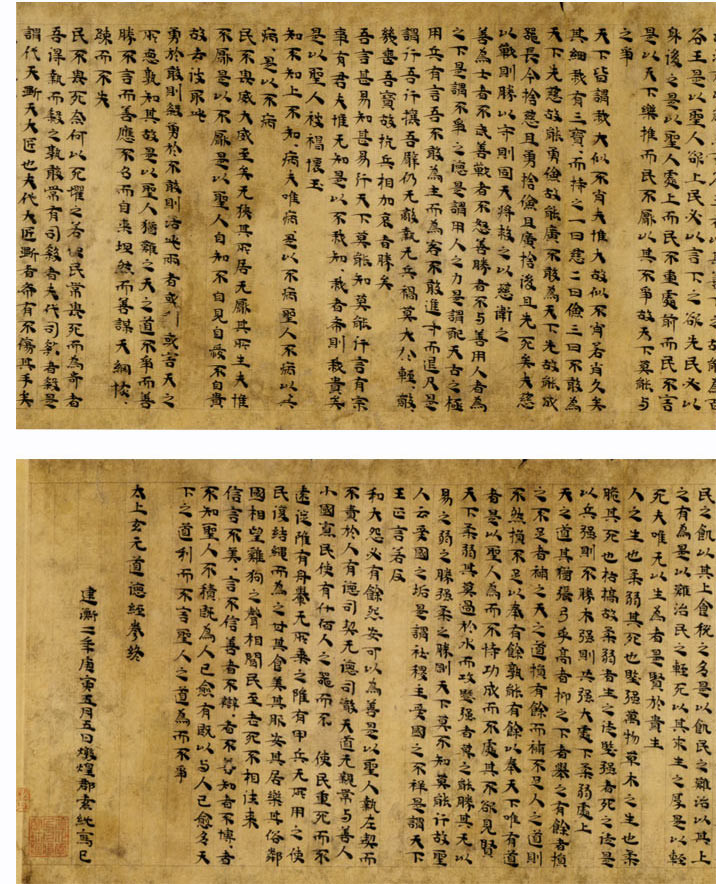 谷王是以聖人欲上民必以言下之欲先民必以
身後之是以聖人處上而民不重處前而民不害
是以天下樂推而民不厭以其不爭故天下莫能与
之爭
天下皆謂我大似不肖夫惟大故似不肖若肖久矣
其細我有三寶而持之一曰慈二曰儉三曰不敢為
天下先慈故能勇儉故能廣不敢為天下先故能成
器長今捨慈且勇捨儉且廣捨後且先死矣夫慈
以戰則勝以守則固天將救之以慈衛之
善為士者不武善戰者不怒善勝者不与善用人者為
之下是謂不爭之德是謂用人之力是謂配天古之極
用兵有言吾不敢為主而為客不敢進寸而退尺是
謂行吾行攘吾臂仍无敵執无兵禍莫大於輕敵、
幾喪吾寶故抗兵相加哀者勝矣
吾言甚易知甚易行天下莫能知莫能行言有宗
事有君夫惟无知是以不我知、我者希則我貴矣
是以聖人被褐懷玉
知不知上不知、病夫唯病、是以不病聖人不病以其
病、是以不病
民不畏威大威至矣无狹其所居无厭其所生夫惟
不厭是以不厭是以聖人自知不自見自愛不自貴
故去彼取此
勇於敢則煞勇於不敢則活此兩者或利或害天之
所惡孰知其故是以聖人猶難之天之道不爭而善
勝不言而善應不召而自来坦然而善謀天網恢、
疎而不失
民不畏死奈何以死懼之若使民常畏死而為奇者
吾得執而殺之孰敢常有司殺者夫代司殺者殺是
謂代天斲夫大匠也夫代大匠斲者希有不傷其手矣
民之飢以其上食稅之多是以飢民之難治以其上
之有為是以難治民之輕死以其求生之厚是以輕
死夫唯无以生為者是賢於貴生
人之生也柔弱其死也堅強萬物草木之生也柔
脆其死也枯槁故柔弱者生之徒堅強者死之徒是
以兵強則不勝木強則共強大處下柔弱處上
天之道其猶張弓乎高者抑之下者舉之有餘者損
之不足者補之天之道損有餘而補不足人之道則
不然損不足以奉有餘孰能有餘以奉天下唯有道
者是以聖人為而不恃功成而不處其不欲見賢
天下柔弱其莫過於水而攻堅強者莫之能勝其无以
易之弱之勝強柔之勝剛天下莫不知莫能行故聖
人云受國之垢是謂社稷主受國之不祥是謂天下
王正言若反
和大怨必有餘怨安可以為善是以聖人執左契而
不責於人有德司契无德司徹天道无親常与善人
小國寡民使有什佰人之器而不 使民重死而不
遠徙雖有舟轝无所乘之雖有甲兵无所用之使
民復結繩而為之甘其食美其服安其居樂其俗鄰
國相望雞狗之聲相聞民至老死不相往来
信言不美、言不信善者不辯、者不善知者不博、者
不知聖人不積既為人己愈有既以与人己愈多天
下之道利而不害聖人之道為而不爭
太上玄元道德經卷終
建衡二年庚寅五月五日燉煌郡索紞寫已